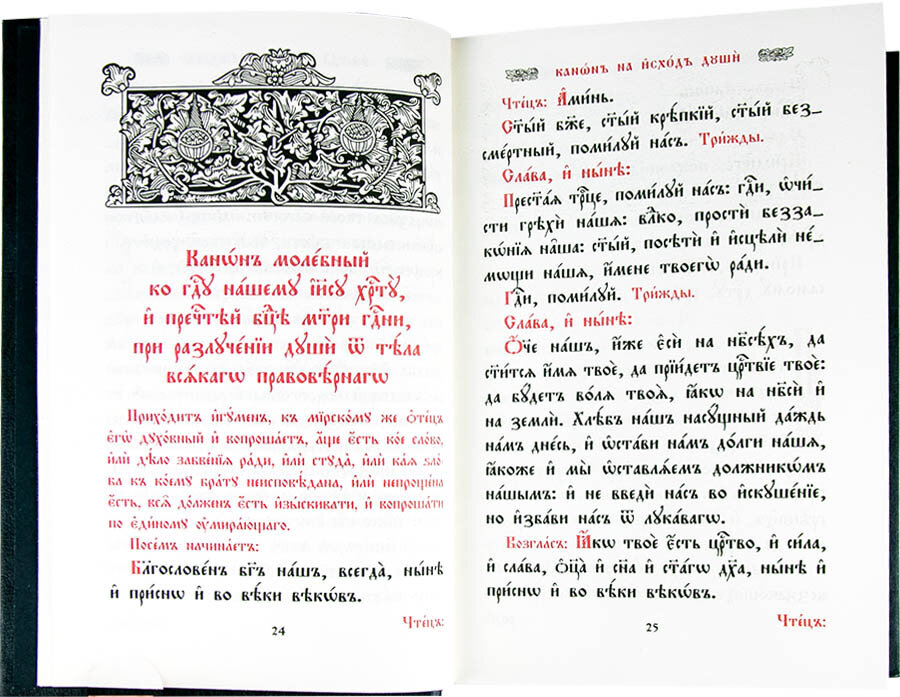 Канѡ́нъ моле́бный
ко гдⷭ҇ꙋ на́шемꙋ і҆и҃сꙋ хрⷭ҇тꙋ̀,
и҆ пречⷭ҇тѣй бцⷣѣ мт҃ри гдⷭ҇ни,
при разлꙋче́нїи дꙋшѝ ѿ тѣ́ла
всѧ́кагѡ правовѣ́рнагѡ
Прихо́дитъ и҆гꙋ́мен, къ мїрско́мꙋ же ѻ҆те́цъ
є҆гѡ̀ дꙋхо́вный и҆ вопроша́етъ, а҆́ще є҆́сть ко́е сло́во,
и҆лѝ дѣ́ло забве́нїѧ ра́ди, и҆лѝ стꙋда̀, и҆лѝ ка́ѧ ѕло́-
ба къ ко́емꙋ бра́тꙋ неисповѣ́дана, и҆лѝ непроще́на
є҆́сть, всѧ̑ до́лженъ є҆́сть и҆зы́скивати, и҆ вопроша́ти
по є҆ди́номꙋ ᲂу҆мира́ющаго.
Посе́мъ начина́етъ:
Бл҃гослове́нъ бг҃ъ на́шъ, всегда̀, ны́нѣ
и҆ при́снѡ и҆ во вѣ́ки вѣкѡ́въ.
Чте́цъ:
24
канѡ́нъ на и҆схо́дъ дꙋшѝ
Чте́цъ: А҆ми́нь.
Ст҃ы́й бж҃е, ст҃ы́й крѣ́пкїй, ст҃ы́й без-
сме́ртный, поми́лꙋй на́съ. Три́жды.
Сла́ва, и҆ ны́нѣ:
Прест҃а́ѧ трⷪ҇це, поми́лꙋй на́съ: гдⷭ҇и, ѡ҆чи́-
сти грѣхѝ на́шѧ: влⷣко, простѝ безза-
кѡ́нїѧ на̑ша: ст҃ы́й, посѣтѝ и҆ и҆сцѣлѝ не́-
мѡщи на́шѧ, и҆́мене твоегѡ̀ ра́ди.
Гдⷭ҇и, поми́лꙋй. Три́жды.
Сла́ва, и҆ ны́нѣ:
Ѻ҆́че на́шъ, и҆́же є҆сѝ на нб҃сѣ́хъ, да
ст҃и́тсѧ и҆́мѧ твоѐ, да прїи́детъ црⷭ҇твїе твоѐ:
да бꙋ́детъ во́лѧ твоѧ̀, ꙗ҆́кѡ на нб҃сѝ и҆
на землѝ. Хлѣ́бъ на́шъ насꙋ́щный да́ждь
на́мъ дне́сь, и҆ ѡ҆ста́ви на́мъ до́лги на́шѧ,
ꙗ҆́коже и҆ мы̀ ѡ҆ставлѧ́емъ должникѡ́мъ
на́шымъ: и҆ не введѝ на́съ во и҆скꙋше́нїе,
но и҆зба́ви на́съ ѿ лꙋка́вагѡ.
Возгла́съ: Ꙗ҆́кѡ твоѐ є҆́сть црⷭ҇тво, и҆ си́ла,
и҆ сла́ва, ѻ҆ц҃а̀ и҆ сн҃а и҆ ст҃а́гѡ дх҃а, ны́нѣ и҆
при́снѡ и҆ во вѣ́ки вѣкѡ́въ.
Чте́цъ:
25